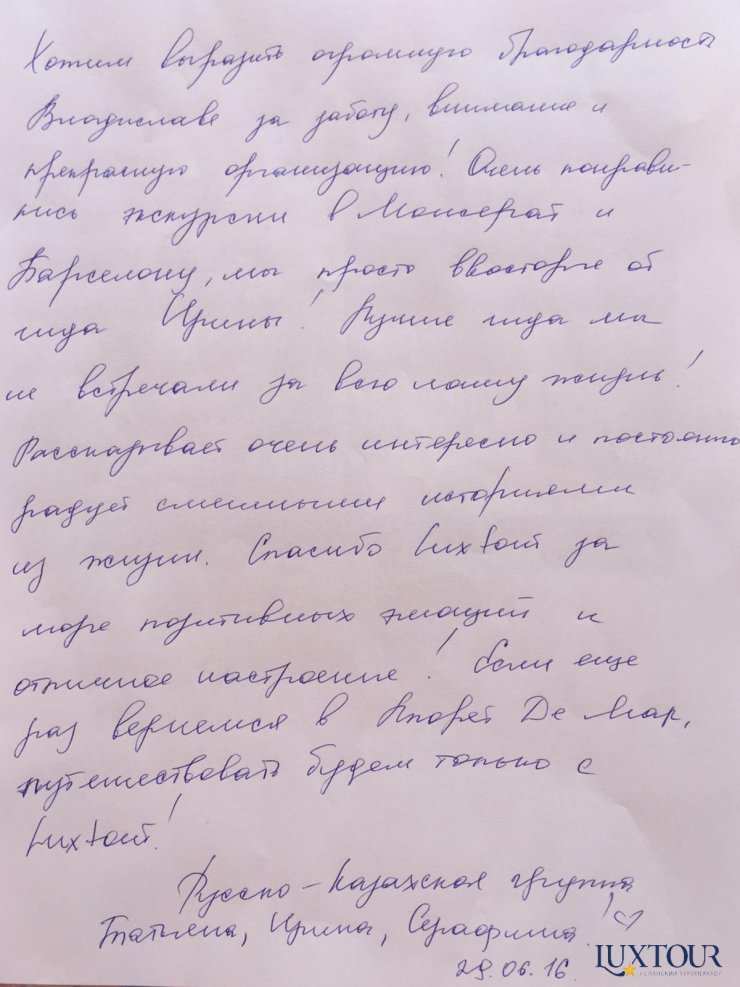 Хотим выразить огромную благодарность
Владиславе за заботу, внимание и
прекрасную организацию! Очень понрави-
лись экскурсии в Монсерат и
Барселону, мы просто ввосторге от
гида Ирины! Лучше гида мы
не встречали за всю нашу жизнь!
Рассказывает очень интересно и постоянно
радует смешными историями
из жизни. Спасибо Luxtour за
море позитивных эмоций и
отличное настроение! Если еще
раз вернемся в Ллорет Де Мар,
путешествовать будем только с
Luxtour!
Русско-Казахская группа
Татьяна, Ирина, Серафима!
29.06.16.
LUXTOUR
ИСПАНСКИЙ ТУРОПЕРАТОР